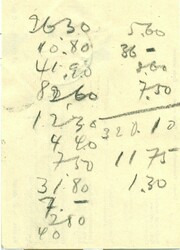 26.30 5.60
10.80 36 -
41.90 8.60
82.60 7.50
12.30 320.10
4.40 11.75
7.50 1.30
31.80
7. -
2.80
40